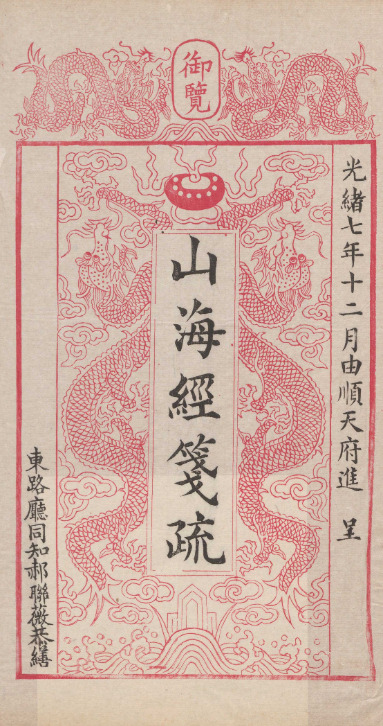 御覽
光緒七年十二月由順天府進 呈
山海經箋疏
東路廳同知郝聯薇恭繕